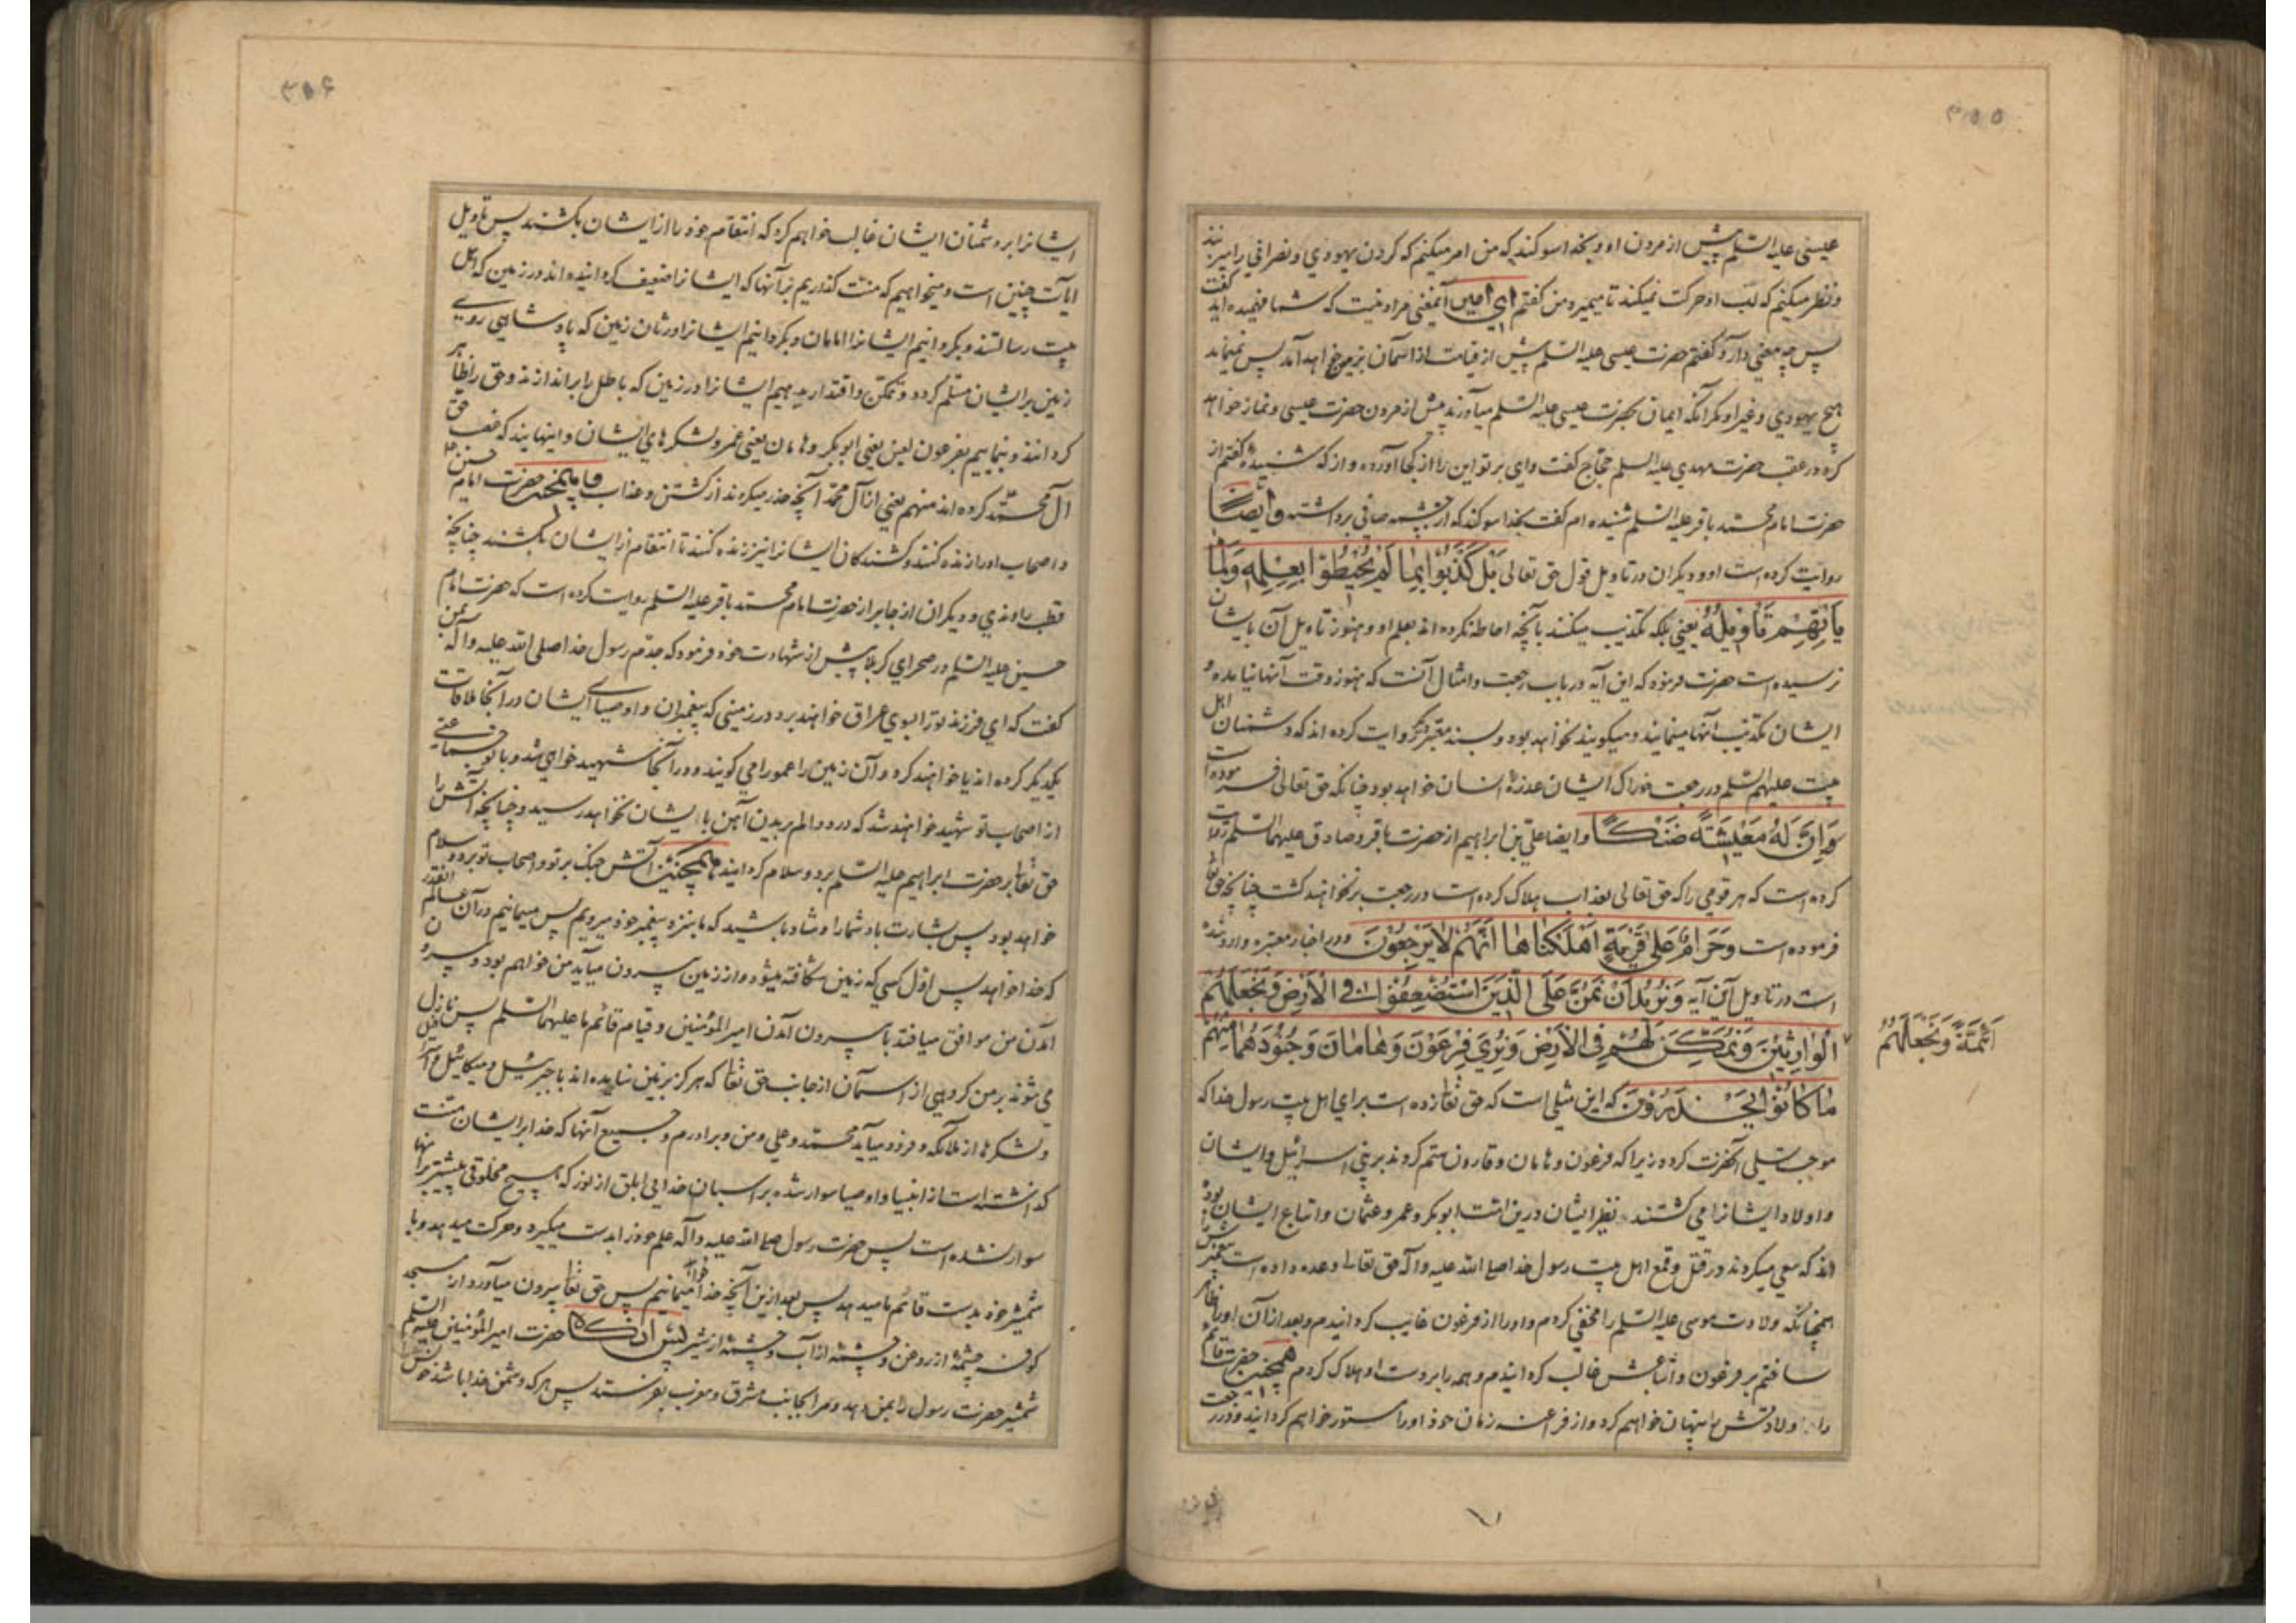 ۳۵۵
عیسی علیه السلم پیش از مردن او و بخدا سوکند که من امر میکنم که کردن یهودي و نصراني را میزنند
و نظر میکنم که لب او حرکت نمیکند تا میمیرد من کفتم اي امیر آنمعني مراد نیست که شما فهمیده اید کفت
پس چه معني دارد کفتم حضرت عیسی علیه السلم پیش از قیامت از اسمان بزمین خواهد آمد پس نمیماند
هیچ یهودي و غیر او مکر آنکه ایمان بحضرت عیسی علیه السلم میآورند پیش از مردن حضرت عیسی و نماز خواهد
کرد در عقب حضرت مهدي علیه السلم حجاج کفت واي بر تو این را از کجا آورده و از که شنیده کفتم از
حضرت امام محمد باقر علیه السلم شنیده ام کفت بخدا سوکند که از چشمه صافي برداشته و ایضاً
روایت کرده است او و دیکران در تاویل قول حق تعالی بَلْ كَذَّبُوا بِما لَمْ يُحيطُوا بِعِلْمِهِ وَلَمَّا
يَأْتِهِمْ تَأويلُهُ یعني بلکه تکذیب میکنند بآنچه احاطه نکرده اند بعلم او و هنوز تاویل آن بایشان
نرسیده است حضرت فرمود که این آیه در باب رجعت و امثال آنست که هنوز وقت آنها نیامده و
ایشان تکذیب آنها مینمایند و میکویند نخواهد بود و بسند معتبر دیکر روایت کرده اند که دشمنان اهل
بیت علیهم السلم در رجعت خوراک ایشان عذره انسان خواهد بود چنانکه حق تعالی فرموده است
وَاِنَّ لَهُ مَعيشَةً ضَنْكاً و ایضا علي بن ابراهیم از حضرت باقر و صادق علیهما السلم روایت
کرده است که هر قومي را که حق تعالی بعذاب هلاک کرده است در رجعت بر نخواهند کشت چنانچه حق تعا
فرموده است وَحَرامٌ عَلى قَرْيَةٍ اَهْلَكْناها اَنَّهُمْ لايَرْجِعُونَ و در اخبار معتبره وارد شده
است در تاویل این آیه وَنُريدُ اَنْ نَمُنَّ عَلَى الَّذينَ اسْتُضْعِفُوا فِي الْاَرْضِ وَنَجْعَلَهُمْ
اَئِمَّةً وَنَجْعَلَهُمُ
الْوارِثينَ وَنُمَكِّنَ لَهُمْ فِي الْاَرْضِ وَنُرِيَ فِرْعَوْنَ وَهامانَ وَجُنُودَهُما مِنْهُمْ
ما كانُوا يَحْذَرُونَ که این مثلي است که حق تعا زده است براي اهل بیت رسول خدا که
موجب تسلي آنحضرت کردد زیرا که فرعون و هامان و قارون ستم کردند بر بني اسرائیل و ایشان
و اولاد ایشانرا مي کشتند و نظیر ایشان درین امت ابوبکر و عمر و عثمان و اتباع ایشان بوده
اند که سعي میکردند در قتل و قمع اهل بیت رسول خدا صلی الله علیه و آله حق تعالی وعده داده است پیغمبرش را
همچنانکه ولادت موسی علیه السلم را مخفي کردم و او را از فرعون غایب کردانیدم و بعد از آن او را ظاهر
ساختم بر فرعون و اتباعش غالب کردانیدم و همه را بر دست او هلاک کردم همچنین حضرت قائم
را ولادتش پنهان خواهم کرد و از فراعنه زمان خود او را مستور خواهم کردانید و در رجعت
۳۵۶
ایشانرا بر دشمنان ایشان غالب خواهم کرد که انتقام خود را از ایشان بکشند پس تاویل
آیات چنین است و میخواهیم که منت کذاریم بر آنها که ایشانرا ضعیف کردانیده اند در زمین که اهل
بیت رسالتند و بکردانیم ایشانرا امامان و بکردانیم ایشانرا وارثان زمین که پادشاهي روي
زمین بر ایشان مسلم کردد و تمکن و اقتدار بدهیم ایشانرا در زمین که باطل را براندازند و حق را ظاهر
کردانند و بنماییم بفرعون لعین یعني ابوبکر و هامان یعني عمر و لشکرهاي ایشان و اینهایند که غصب حق
آل محمد کرده اند منهم یعني از آل محمد آنچه حذر میکردند از کشتن و عذاب حضرت امام حسین
و اصحاب او را زنده کنند و کشندکان ایشانرا نیز زنده کنند تا انتقام از ایشان بکشند چنانچه
قطب راوندي و دیکران از جابر از حضرت امام محمد باقر علیه السلم روایت کرده است که حضرت امام
حسین علیه السلم در صحراي کربلا پیش از شهادت خود فرمود که جدم رسول خدا صلی الله علیه و آله بمن
کفت که اي فرزند تو را بسوي عراق خواهند برد در زمیني که پیغمبران و اوصیاي ایشان در آنجا ملاقات
یکدیکر کرده اند یا خواهند کرد و آن زمین را عمورا مي کویند و در آنجا شهید خواهي شد و با تو جماعتي
از اصحاب تو شهید خواهند شد که درد و الم بریدن آهن بایشان نخواهد رسید و چنانچه آتش را
حق تعا بر حضرت ابراهیم علیه السلم برد و سلام کردانید همچنین آتش جنک بر تو و اصحاب تو برد و سلام
خواهد بود پس بشارت باد شما را و شاد باشید که ما بنزد پیغمبر خود میرویم پس میمانیم در آن عالم انقدر
که خدا خواهد پس اول کسي که زمین شکافته میشود و از زمین بیرون میآید من خواهم بود و بیرون
آمدن من موافق میافتد با بیرون آمدن امیر المؤمنین و قیام قائم ما علیهما السلم پس نازل
مي شوند بر من کروهي از آسمان از جانب حق تعا که هرکز بزمین نیامده اند با جبرئیل و میکائیل و اسرافیل
و لشکرها از ملائکه و فرود میآید محمد و علي و من و برادرم و جمیع آنها که خدا بر ایشان منت
کذاشته است از انبیا و اوصیا سوار شده بر اسبان خدایي ابلق از نور که هیچ مخلوقي پیشتر بر آنها
سوار نشده است پس حضرت رسول صلی الله علیه و آله علم خود را بدست میکیرد و حرکت میدهد و با
شمشیر خود بدست قائم ما میدهد پس بعد ازین آنچه خدا خواهد میمانیم پس حق تعا بیرون میآورد از مسجد
کوفه چشمهٔ از روغن و چشمهٔ از آب و چشمهٔ از شیر پس انکاه حضرت امیر المؤمنین علیه السلم
شمشیر حضرت رسول را بمن دهد و مرا بجانب مشرق و مغرب بفرستد پس هر که دشمن خدا باشد خونش